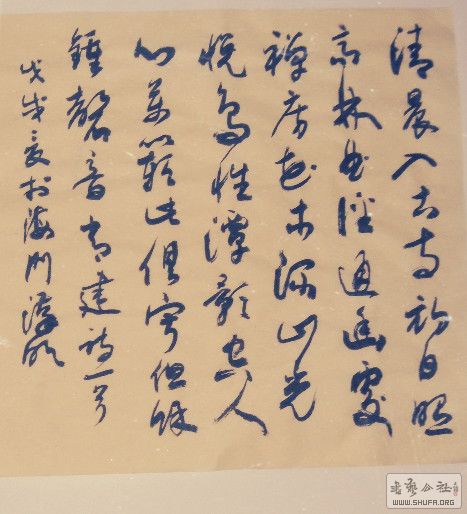 清晨入古寺初日照
高林曲径通幽處
禅房花木深山光
悦鳥性潭影空人
心萬籟此俱寂但餘
鍾磬音常建詩一首
戊戌夏於海門
书艺公社
WWW.SHUFA.ORG